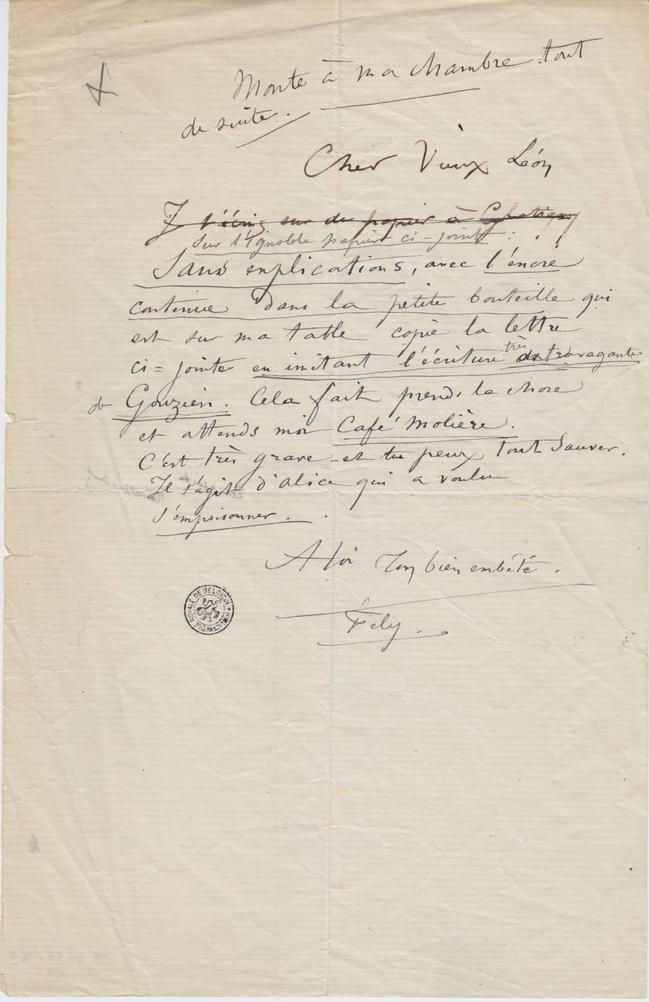 Monte à ma chambre tout
de suite.
Cher Vieux Léon
J t'écris sur du papier à
Sur l'ignoble papier ci-joint :
Sans explications, avec l'encre
contenue dans la petite bouteille qui
est sur ma table copie la lettre
ci=jointe en imitant l'écriture très extravagante
de Gouzien. Cela fait prends la chose
et attends moi Café Molière.
C'est très grave - et tu peux tout sauver.
Il s'agit d'Alice qui a voulu
s'empoisonner.
A toi Ton bien embêté.
Fély.